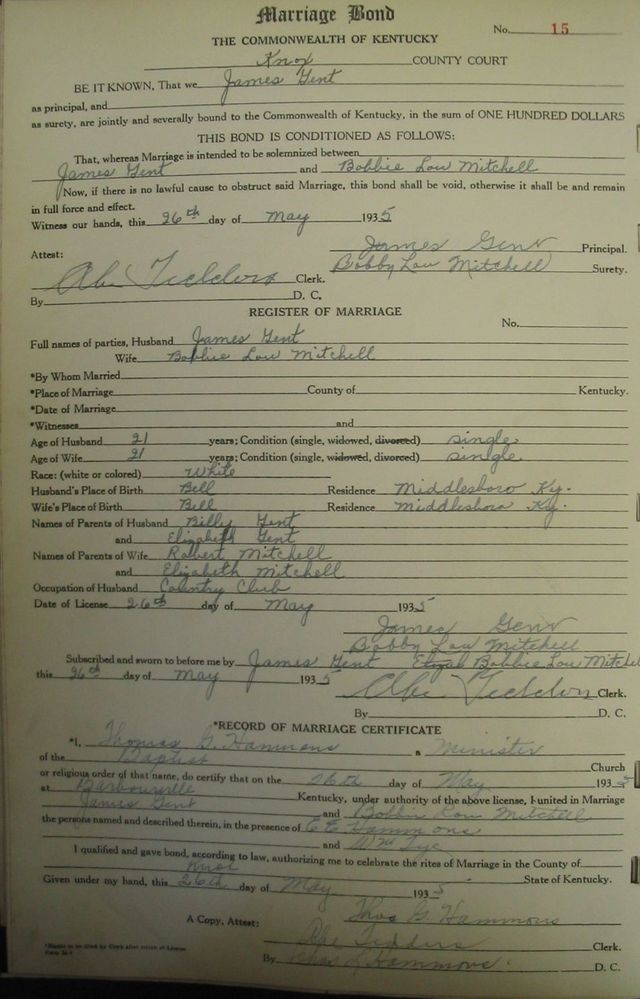 Marriage Bond
No. 15
THE COMMONWEALTH OF KENTUCKY
Knox COUNTY COURT
BE IT KNOWN, That we James Gent
as principal, and
as surety, are jointly and severally bound to the Commonwealth of Kentucky, in the sum of ONE HUNDRED DOLLARS
THIS BOND IS CONDITIONED AS FOLLOWS:
That, whereas Marriage is intended to be solemnized between
James Gent and Bobbie Lou Mitchell
Now, if there is no lawful cause to obstruct said Marriage, this bond shall be void, otherwise it shall be and remain
in full force and effect.
Witness our hands, this 26th day of May 1935
James Gent Principal.
Attest: Bobby Lou Mitchell Surety.
Abe Tedders Clerk.
By D. C.
REGISTER OF MARRIAGE
No.
Full names of parties, Husband James Gent
Wife Bobbie Lou Mitchell
*By Whom Married
*Place of Marriage County of Kentucky.
*Date of Marriage
*Witnesses and
Age of Husband 21 years; Condition (single, widowed, divorced) single
Age of Wife 21 years; Condition (single, widowed, divorced) single
Race: (white or colored) White
Husband's Place of Birth Bell Residence Middlesboro Ky.
Wife's Place of Birth Bell Residence Middlesboro Ky.
Names of Parents of Husband Billy Gent
and Elizabeth Gent
Names of Parents of Wife Robert Mitchell
and Elizabeth Mitchell
Occupation of Husband Country Club
Date of License 26th day of May 1935
James Gent
Bobby Lou Mitchell
Subscribed and sworn to before me by James Gent Bobbie Lou Mitchel
this 26th day of May 1935 Abe Tedders Clerk.
By D. C.
*RECORD OF MARRIAGE CERTIFICATE
*I, Thomas G. Hammons a Minister
of the Baptist Church
or religious order of that name, do certify that on the 26th day of May 1935
at Barbourville Kentucky, under authority of the above license, I united in Marriage
James Gent and Bobbie Lou Mitchell
the persons named and described therein, in the presence of C E Hammons
and Wm
I qualified and gave bond, according to law, authorizing me to celebrate the rites of Marriage in the County of
Knox State of Kentucky.
Given under my hand, this 26th day of May 1935
Thos G. Hammons
A Copy, Attest: Abe Tedders Clerk.
By Hammons D. C.